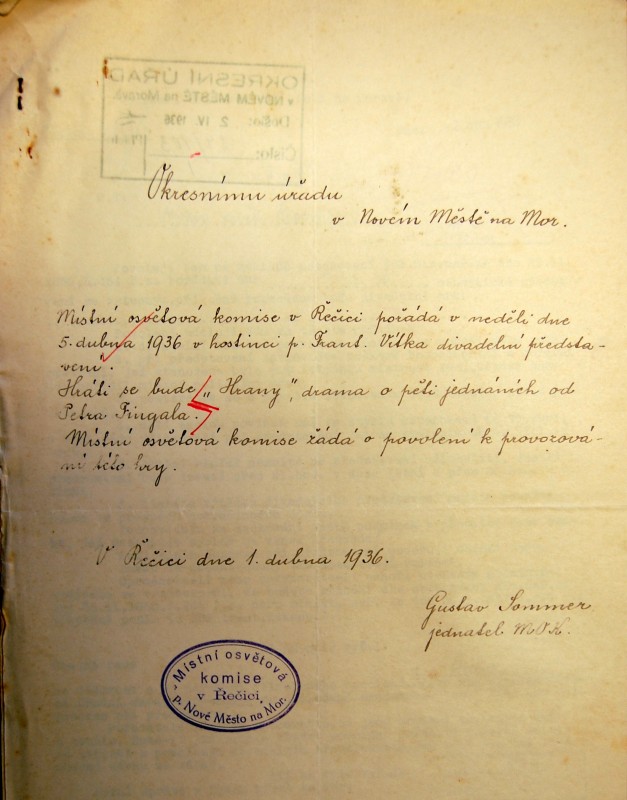 OKRESNÍ ÚŘAD
v NOVÉM MĚSTĚ na Moravě
Došlo: 2. IV. 1936
Číslo:
Okresnímu úřadu
v Novém Městě na Mor.
Místní osvětová komise v Řečici pořádá v neděli dne
5. dubna 1936 v hostinci p. Frant. Vítka divadelní předsta-
vení.
Hráti se bude „Hrany", drama o pěti jednáních od
Petra Fingala.
Místní osvětová komise žádá o povolení k provozová-
ní této hry.
V Řečici dne 1. dubna 1936.
Gustav Sommer
jednatel M.O.K.
Místní osvětová
komise
v Řečici
p. Nové Město na Mor.